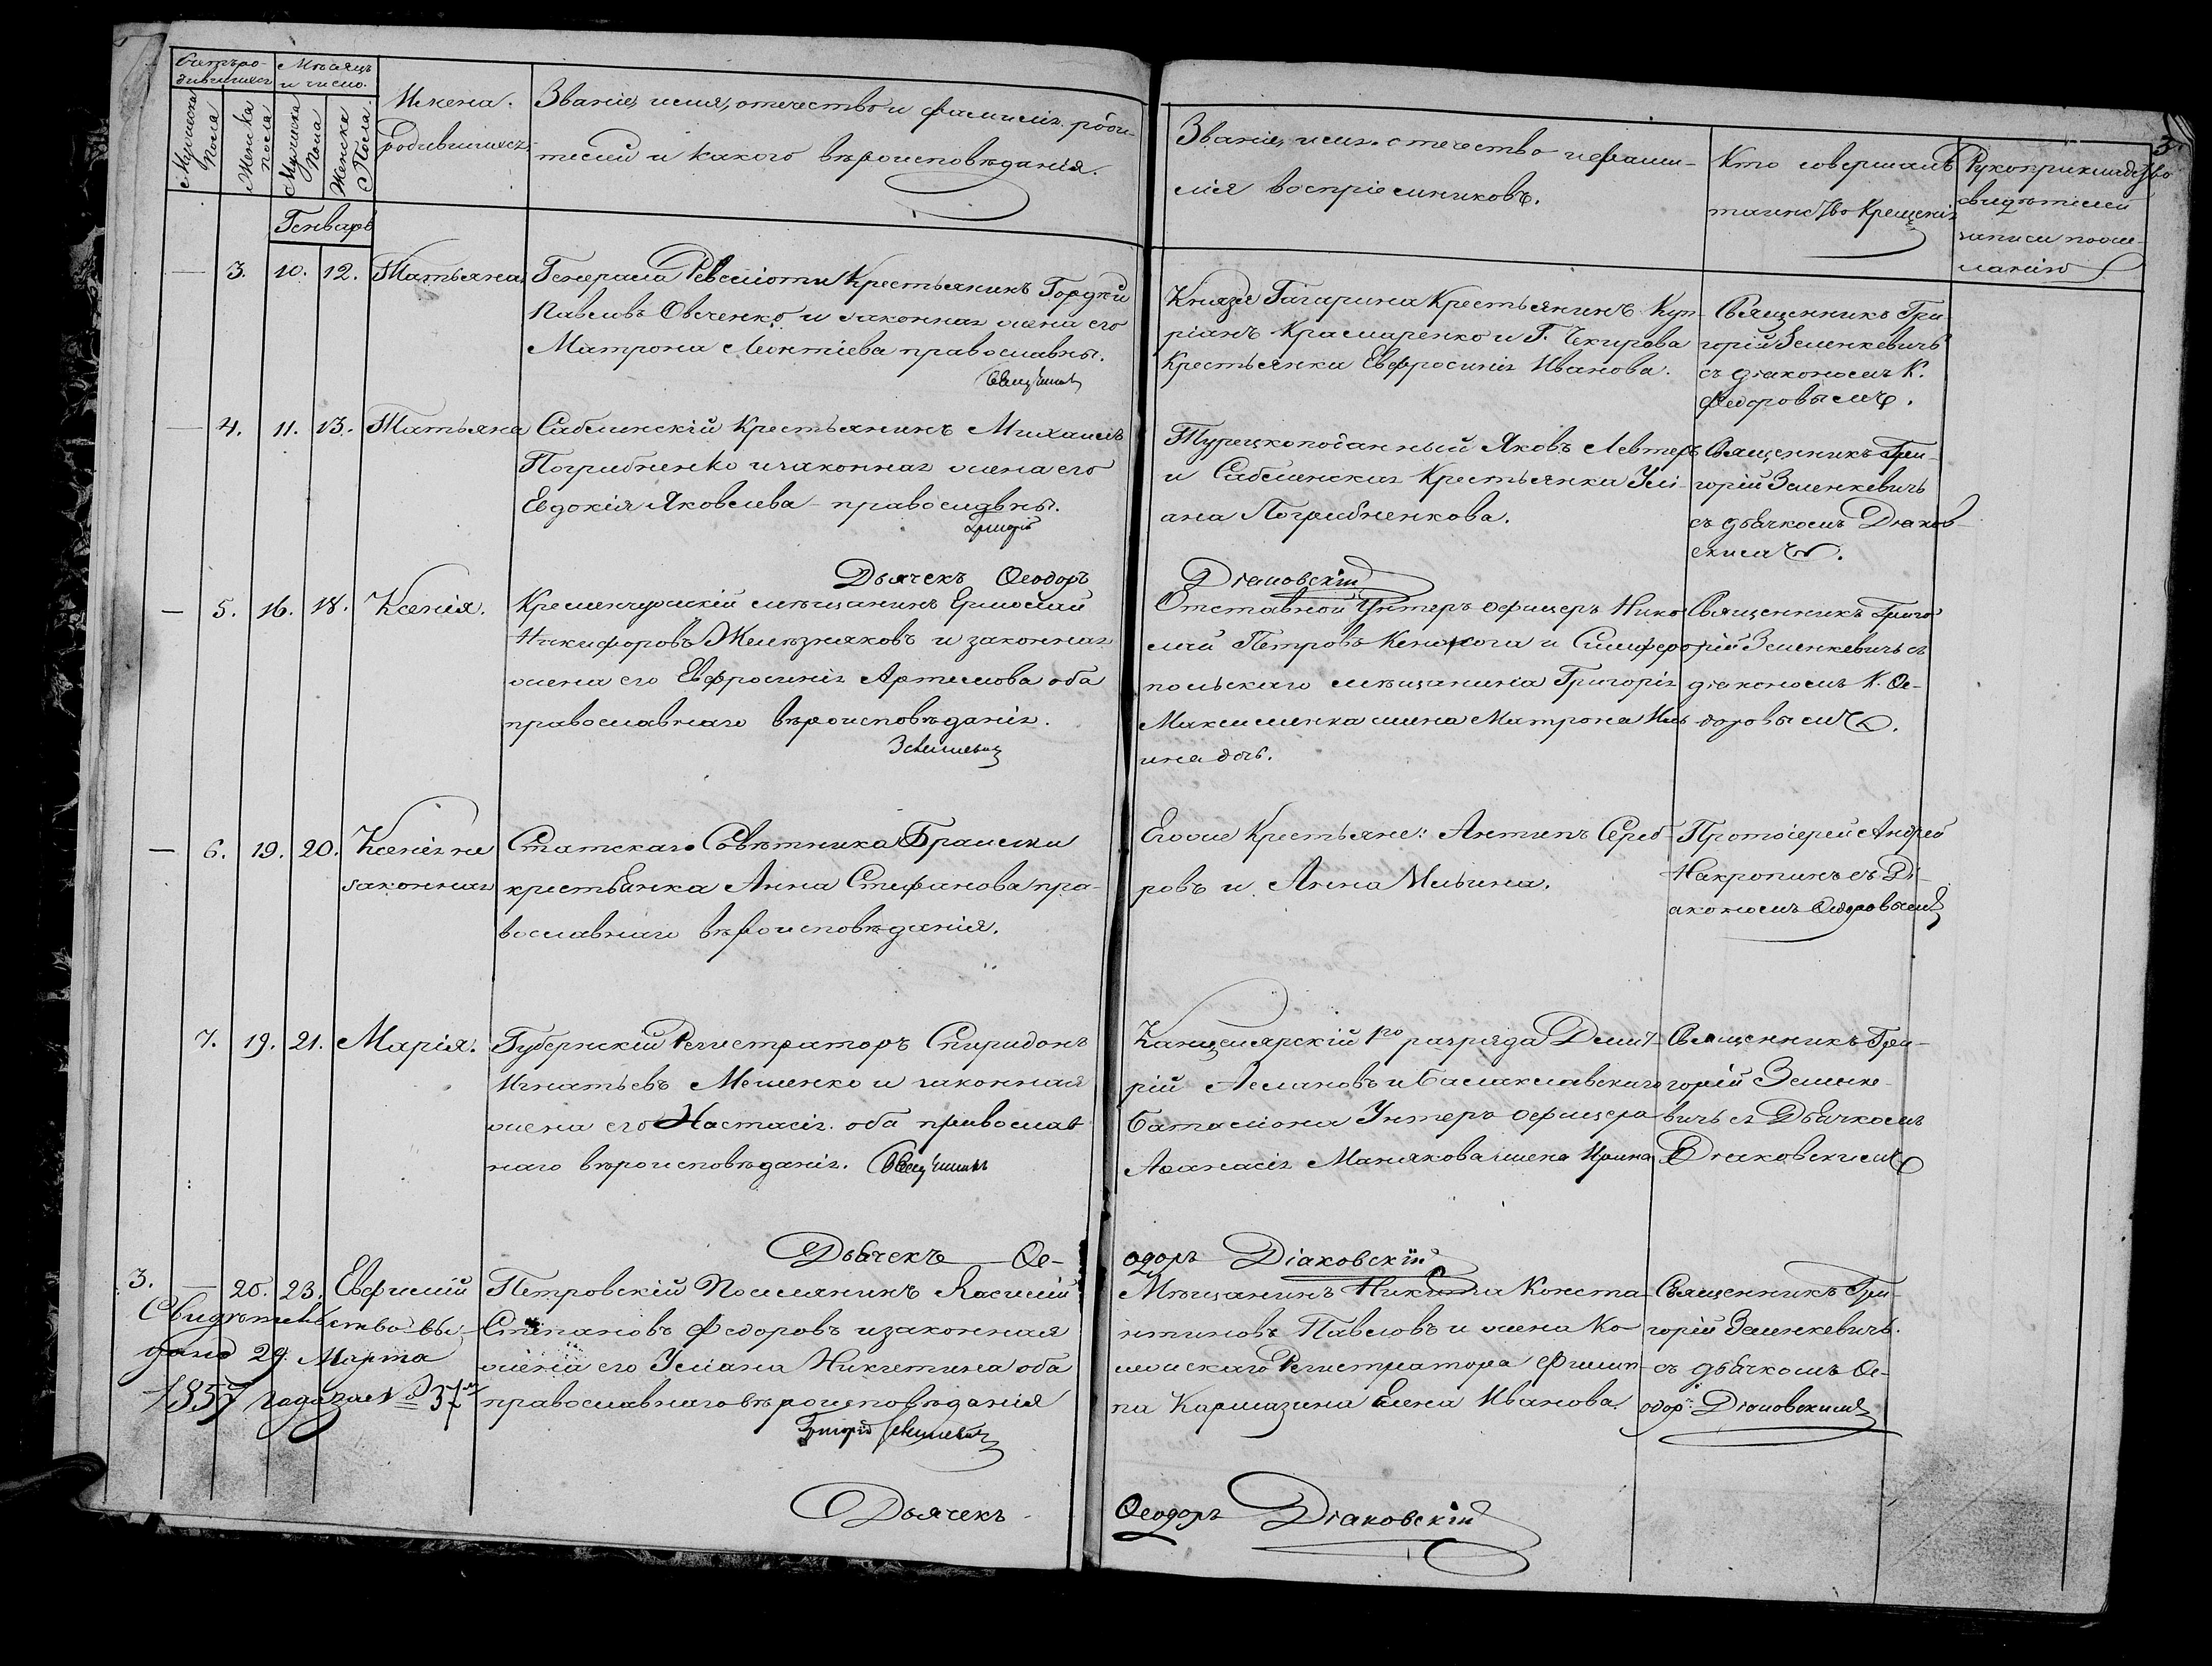 Счетъ ро-
дившихся
Мѣсяцъ
и число.
Мужеска
Пола
Женска
пола
Мужеска
Пола
Женска
Пола.
Имена.
родившихся.
Званіе, имя, отечество и фамилія роди-
телей и какого вѣроисповѣданія.
Званіе, имя, отечество и фами-
лія воспріемниковъ.
Кто совершалъ
таинство Крещенія
Рукоприкладство
свидѣтелей
записи по же-
ланію
3
Генварь
— 3. 10. 12. Татьяна
Генерала Ревеліоти Крестьянинъ Гордѣй
Павловъ Овченко и законная жена его
Матрона Леонтіева православны.
Священникъ
Князя Гагарина Крестьянинъ Куп-
ріанъ Крамаренко и Г. Чекирова
Крестьянка Евфросинія Иванова.
Священникъ Гри-
горій Зеленкевичъ
съ діакономъ К.
Федоровымъ.
— 4. 11. 13. Татьяна
Саблинскій Крестьянинъ Михаилъ
Погрибненко и законная жена его
Евдокія Яковлева православны.
Григорій
Турецкоподанный Яковъ Левтеръ
и Саблинская Крестьянка Улі-
ана Погрибненкова.
Священникъ Гри-
горій Зеленкевичъ
съ дьячкомъ Діаков-
скимъ.
Дьячекъ Ѳеодоръ
Діаковскій
— 5. 16. 18. Ксенія.
Кременчугскій мѣщанинъ Ермолай
Никифоровъ Желѣзняковъ и законная
жена его Евфросинія Артемова оба
православнаго вѣроисповѣданія.
Зеленкевичъ
Отставной Унтеръ офицеръ Нико-
лай Петровъ и Симферо-
польскаго мѣщанина Григорія
Максименка жена Матрона Иль-
ина дочь.
Священникъ Григо-
рій Зеленкевичъ съ
діакономъ К. Ѳе-
доровымъ.
— 6. 19. 20. Ксенія не
законная
Статскаго Совѣтника Браилки
крестьянка Анна Стефанова пра-
вославнаго вѣроисповѣданія.
Его же Крестьяне: Антипъ Сереб-
ровъ и Анна Ильина.
Протоіерей Андрей
Накропинъ съ Ді-
акономъ Ѳедоровымъ
7. 19. 21. Марія.
Губернскій Регистраторъ Спиридонъ
Игнатьевъ Мешенко и законная
жена его Настасія оба православ
наго вѣроисповѣданія. Священникъ
Канцелярскій 1го разряда Дмит-
рій Аслановъ и Балаклавскаго
Баталіона Унтеръ офицера
Аѳанасія Манякова жена Ирина
Священникъ Гри-
горій Зеленке-
вичъ съ Дьячкомъ
Діаковскимъ
Дьячекъ Ѳе-
одоръ Діаковскій
3. — 20. 23. Евфимій
Свидѣтельство вы-
дано 29 Марта
1857 года за № 37м
Петровскій Поселянинъ Василій
Степановъ Федоровъ и законная
жена его Уліана Никитина оба
православнаго вѣроисповѣданія
Григорій Зеленкевичъ
Мѣщанинъ Никита Конста-
нтиновъ Павловъ и жена Ко-
лежскаго Регистратора Филип-
па Кармазина Елена Иванова.
Священникъ Гри-
горій Зеленкевичъ
съ дьячкомъ Ѳе-
одор. Діаковскимъ
Дьячекъ
Ѳеодоръ Діаковскій